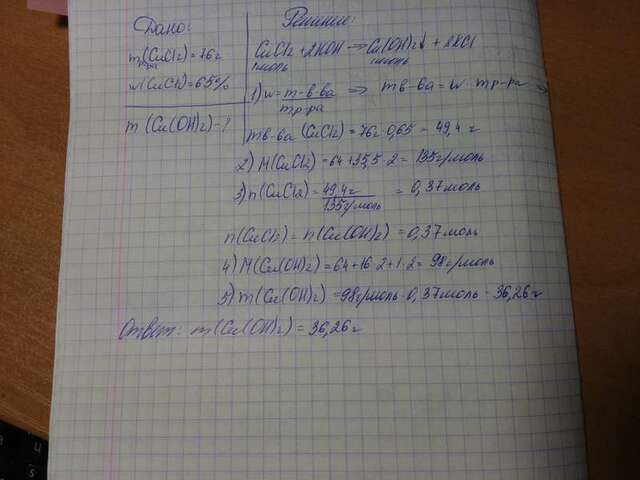 Дано:
m(CuCl2)=76г
р-ра
w(CuCl2)=65%
m (Cu(OH)2)-?
Решение:
CuCl2 + 2KOH → Cu(OH)2↓ + 2KCl
1моль 1моль
1) w = m в-ва / m р-ра => m в-ва = w · m р-ра =>
m в-ва (CuCl2) = 76г · 0,65 = 49,4 г
2) M(CuCl2) = 64+35,5 · 2 = 135г/моль
3) n(CuCl2) = 49,4г / 135г/моль = 0,37моль
n(CuCl2) = n(Cu(OH)2) = 0,37моль
4) M(Cu(OH)2) = 64+16·2+1·2 = 98г/моль
5) m(Cu(OH)2) = 98г/моль · 0,37моль = 36,26г
Ответ: m(Cu(OH)2) = 36,26г